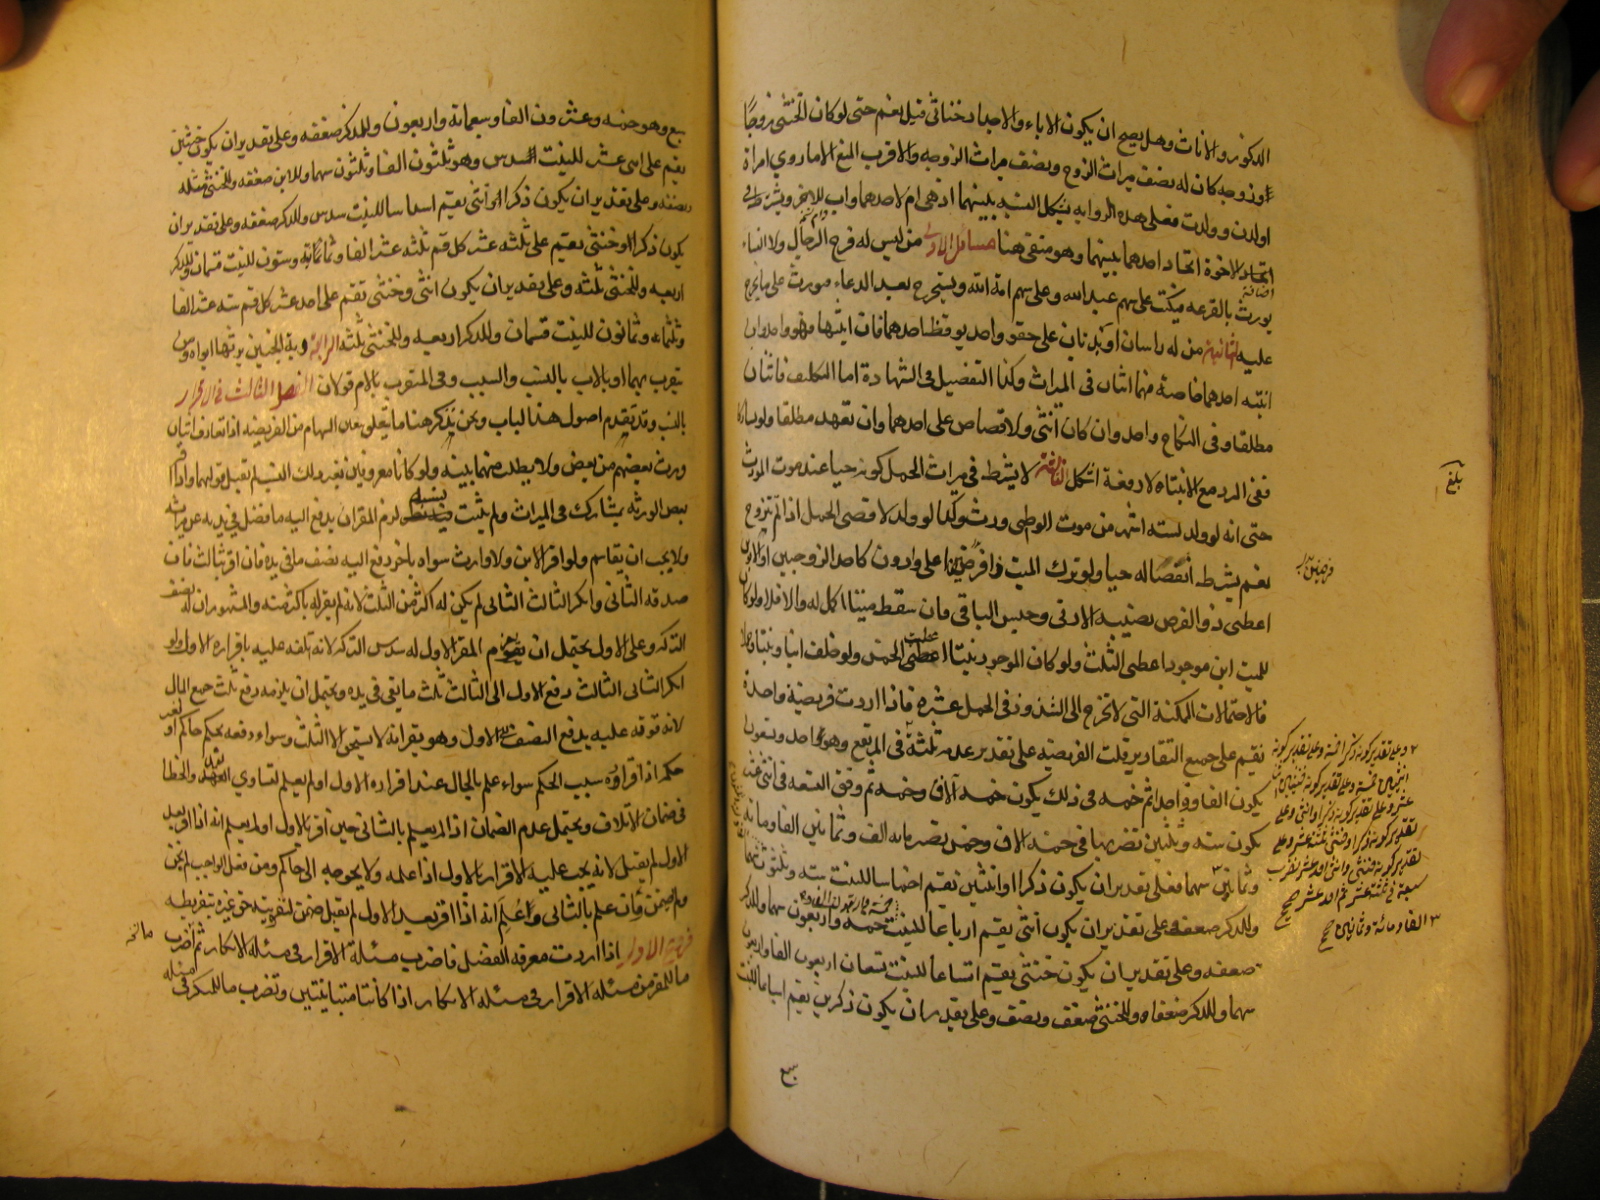 الذكور والاناث وهل يصح ان يكون الاباء والاجداد خناثى قيل نعم حتى لو كان الخنثى زوجا
او زوجة كان له نصف ميراث الزوج ونصف ميراث الزوجة والاقرب المنع الا ما روي امراة
اولدت وولدت فعلى هذه الرواية يشكل النسبة بينهما اذ هي ام لاحدهما واب للاخر ويشترط في
الاخوة اتحاد احدهما بينهما وهو منتفي هنا مسائل الاولى من ليس له فرج الرجال ولا النساء
يورث بالقرعة فيكتب على سهم عبد الله وعلى سهم امة الله ويستخرج بعد الدعاء فيورث على ما يخرج
عليه الثانية من له راسان او بدنان على حقو واحد يوقظ احدهما فان انتبها فهو واحد وان
انتبه احدهما خاصة فهما اثنان في الميراث وكذا التفصيل في الشهادة اما التكليف فاثنان
مطلقا وفي النكاح واحد وان كان انثى ولا قصاص على احدهما وان تعمد مطلقا ولو
ففي الرد مع الانتباه لا دفعة اشكال الثالثة لا يشترط في ميراث الحمل كونه حيا عند موت المورث
حتى انه لو ولد لستة اشهر من موت الواطي ورث وكذا لو ولد لاقصى الحمل اذا لم تتزوج
نعم يشترط انفصاله حيا ولو ترك الميت ذا فرض اعلى وادون كاحد الزوجين او الابوين
اعطى ذو الفرض نصيبه الادنى وحبس الباقي فان سقط ميتا اكمل له والا فلا ولو كان
للميت ابن موجود اعطى الثلث ولو كان الموجود بنتا اعطيت الخمس ولو خلف ابنا وبنتا وحملا
فالاحتمالات الممكنة التي لا تخرج الى الشذوذ في الحمل عشرة فاذا اردت فريضة واحدة
تقسيم على جميع التقادير قلت الفريضة على تقدير عدمه ثلثة في المربع وهو واحد وتسعون
يكون الفا وواحد ثم خمسة في ذلك يكون خمسة الاف وخمسة ثم وفق التسعة في اثني عشر
يكون ستة وثلثين تضربها في خمسة الاف وخمسة تصير مائة الف وثمانين الفا ومائة
وثمانين سهما فعلى تقدير ان يكون ذكرا او انثيين تقسم اخماسا للبنت ستة وثلثون
وللذكر ضعفه وعلى تقدير ان يكون انثى يقسم ارباعا للبنت خمسة واربعون سهما وللذكر
ضعفه وعلى تقدير ان يكون خنثى يقسم اتساعا للبنت تسعان اربعون الفا واربعون
سهما وللذكر ضعفاه وللخنثى ضعف ونصف وعلى تقدير ان يكون ذكرين يقسم اسباعا للبنت
سبع
بلغ
٢ وعلى تقدير كونه ذكرا خمسة وعلى تقدير كونه
عشر وعلى تقدير كونه ذكرا وانثى وعلى
تقدير كونه ذكرا وخنثى ثلثة عشر وعلى
تقدير كونه خنثى وانثى احد عشر تضرب
سبعة في ثلثة عشر ثم احد عشر صح
٣ الفا ومائة وثمانين صح
سبع وهو خمسة وعشرون الفا وسبعمائة واربعون وللذكر ضعفه وعلى تقدير ان يكون خنثيين
يقسم على اثني عشر للبنت السدس وهو ثلثون الفا وثلثون سهما وللابن ضعفه وللخنثى مثله
ونصفه وعلى تقدير ان يكون ذكرا وانثى يقسم اسداسا للبنت سدس وللذكر ضعفه وعلى تقدير ان
يكون ذكرا وخنثى يقسم على ثلثة عشر كل قسم ثلثة عشر الفا وثمانمائة وستون للبنت قسمان وللذكر
اربعة وللخنثى ثلثة وعلى تقدير ان يكون انثى وخنثى تقسم على احد عشر كل قسم ستة عشر الفا
وثلثمائة وثمانون للبنت قسمان وللذكر اربعة وللخنثى ثلثة الرابعة دية الجنين يرثها ابواه ومن
يتقرب بهما او بالاب بالنسب والسبب وفي المتقرب بالام قولان الفصل الثالث في الاقرار
بالنسب وقد تقدم اصول هذا الباب ونحن نذكر هنا ما يتعلق بتعيين السهام من الفريضة اذا تعارف اثنان
ورث بعضهم من بعض ولا يطلب منهما بينة ولو كانا معروفين بغير ذلك النسب لم يقبل قولهما واذا اقر
بعض الورثة بمشارك في الميراث ولم يثبت نسبه لزم المقر ان يدفع اليه ما فضل في يده عن ميراثه
ولا يجب ان يقاسم ولو اقر الابن ولا وارث سواه باخر دفع اليه نصف ما في يده فان اقر بثالث فان
صدقه الثاني وانكر الثالث الثاني لم يكن له اكثر من الثلث لانه لم يقر له باكثر منه والمشهور ان له نصف
التركة وعلى الاول يحتمل ان يغرم المقر الاول له سدس التركة لانه اتلفه عليه باقراره الاول ولو
انكر الثاني الثالث دفع الاول الى الثالث ثلث ما بقي في يده ويحتمل ان يلزمه دفع ثلث جميع المال
لانه فوته عليه بدفع النصف الى الاول وهو يقر انه لا يستحق الا الثلث وسواء دفعه بحكم حاكم او لغير
حكم اذ اقراره سبب الحكم سواء علم بالحال عند اقراره الاول او لم يعلم لتساوي العمد والخطا
في ضمان الاتلاف ويحتمل عدم الضمان اذا لم يعلم بالثاني حين اقر بالاول او لم يعلم انه اذا اقر بعد
الاول لم يقبل لانه يجب عليه الاقرار بالاول اذا علمه ولا يحوجه الى حاكم ومن فعل الواجب لم يخن
ولم يضمن وان علم بالثاني واعلم انه اذا اقر بعد الاول لم يقبل ضمن لتفويته حق غيره بتفريطه
فريضة الاولى اذا اردت معرفة الفضل فاضرب مسئلة الاقرار في مسئلة الانكار ثم اضرب
ما للمقر من مسئلة الاقرار في مسئلة الانكار اذا كانتا متباينتين وتضرب ما للمنكر في مسئلة